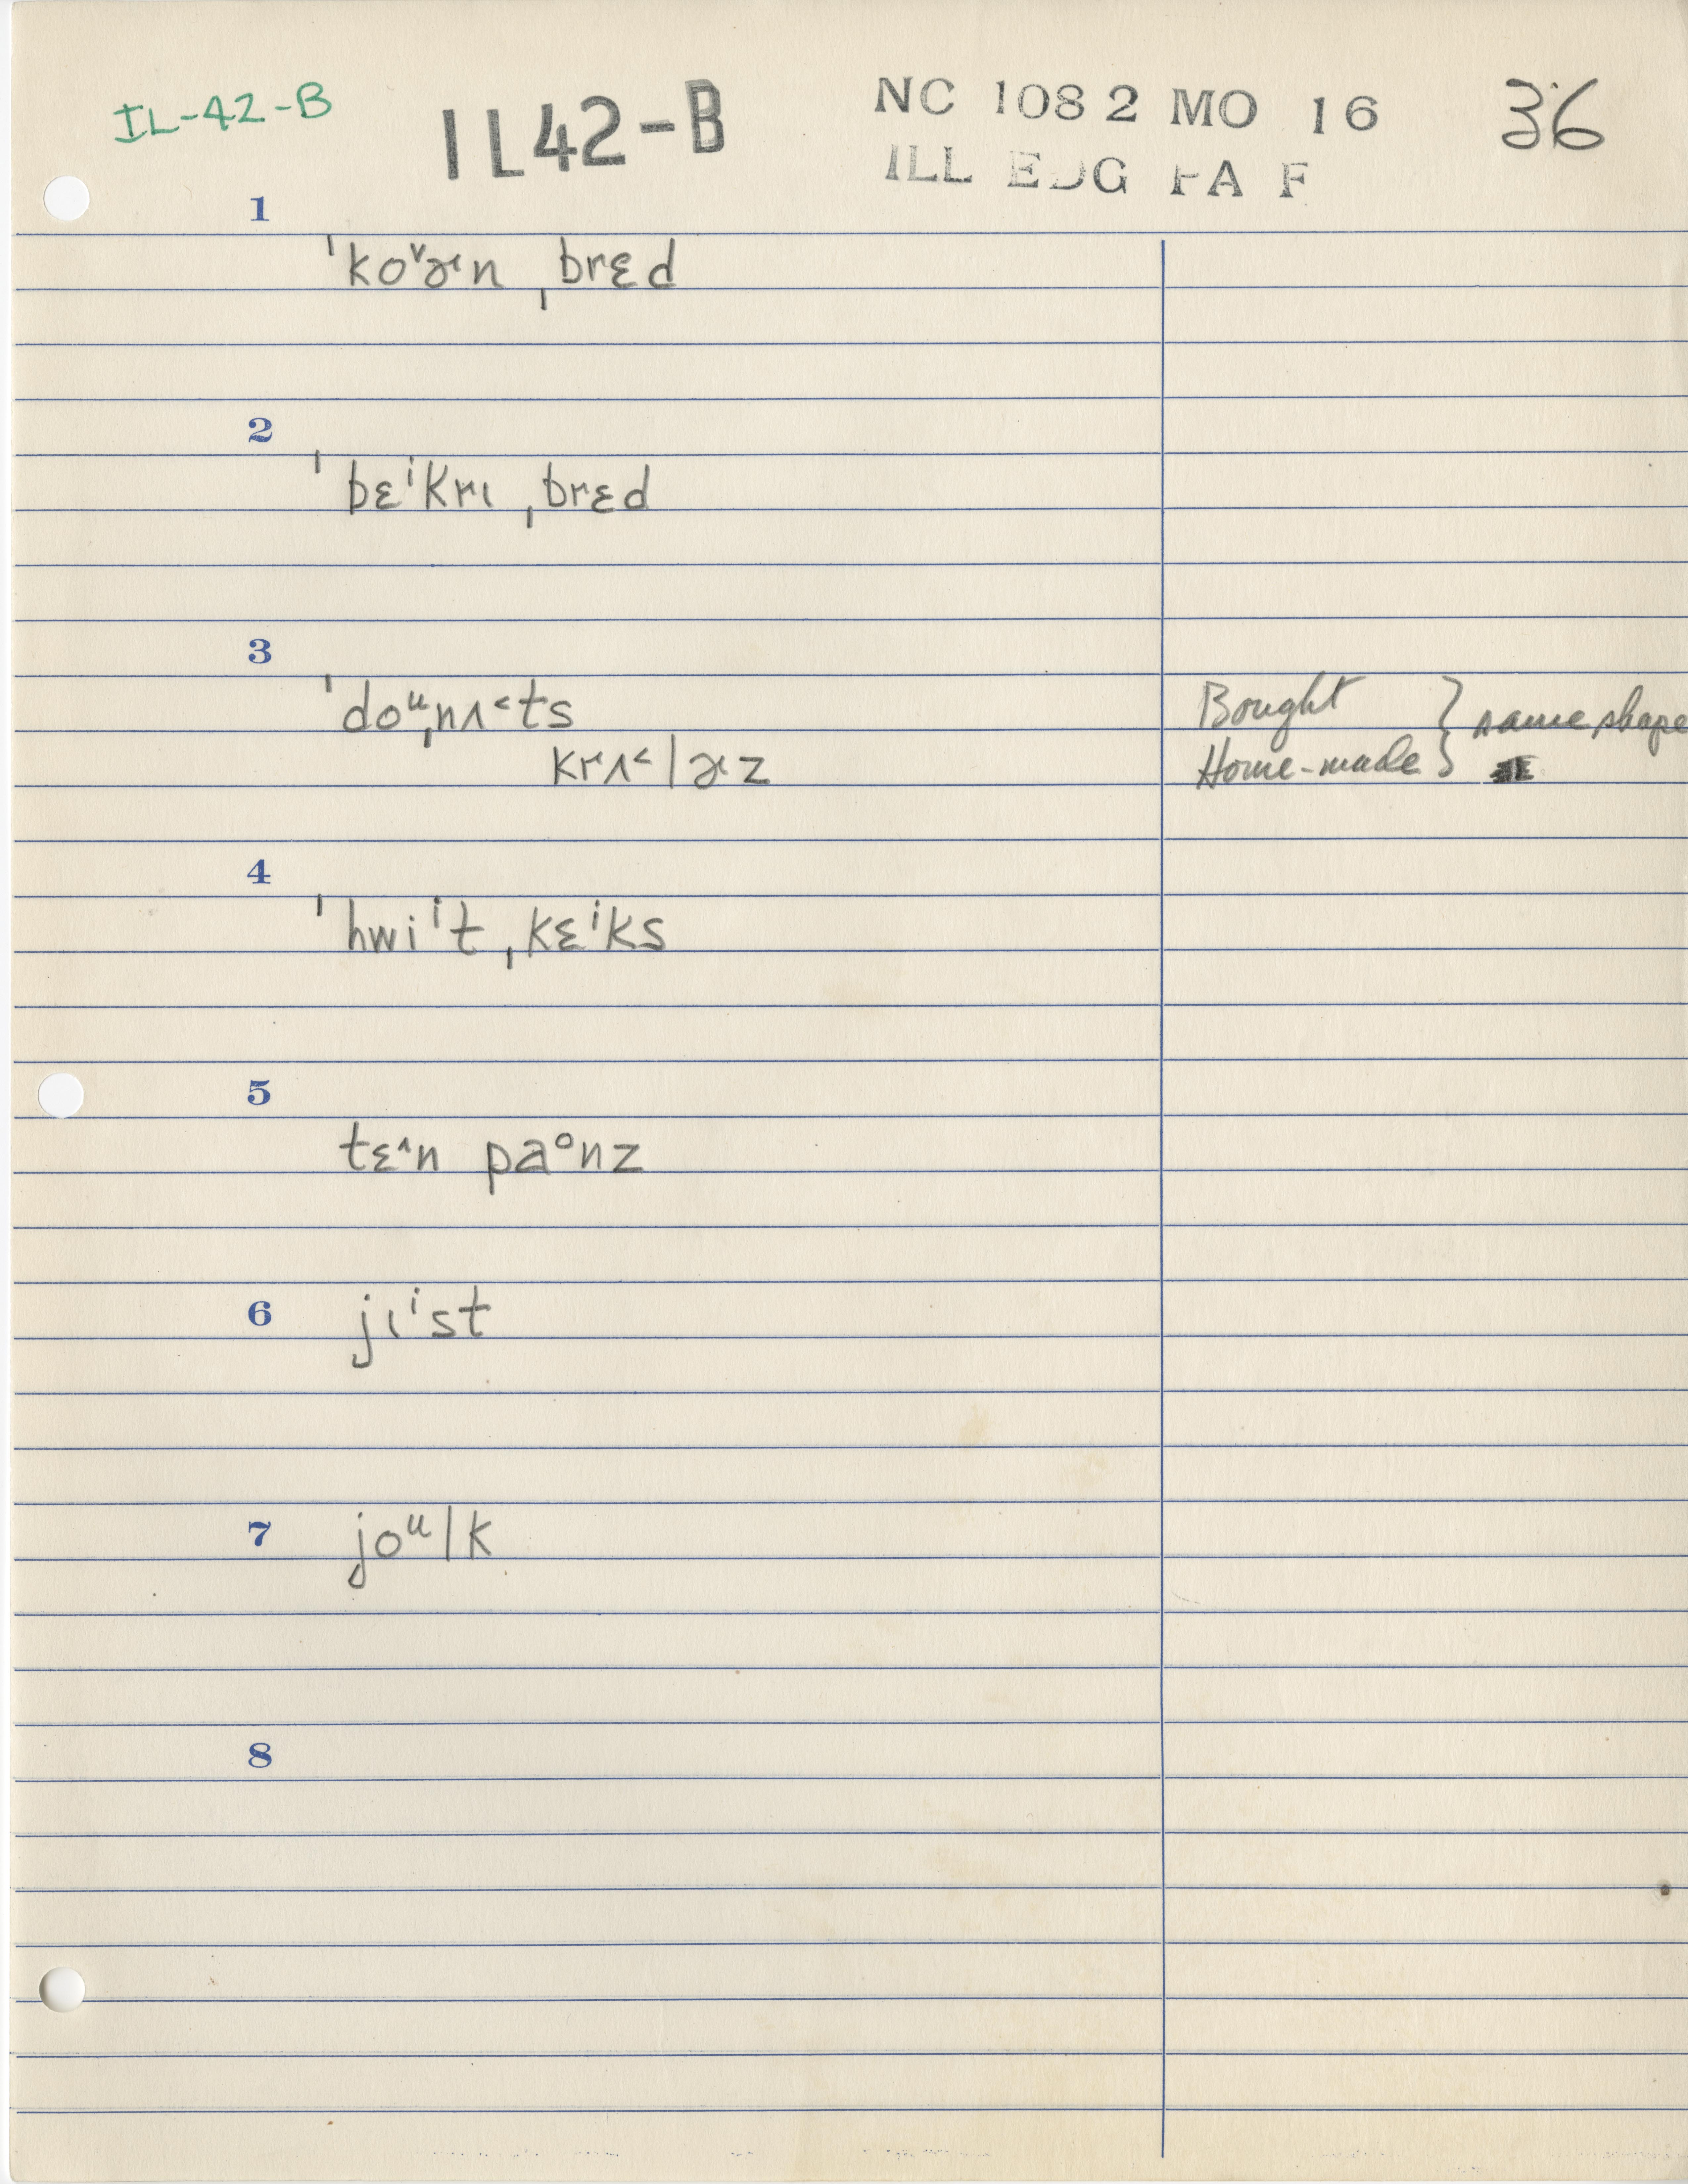 IL-42-B
IL42-B
NC 1082 MO 16
36
ILL EDG PA F
1
ˈkoˇɚn ˌbrɛd
2
ˈbɛⁱkrɪ ˌbrɛd
3
ˈdoᵘˌnʌ˂ts
Bought } same shape
krʌ˂lɚz
Home-made }
4
ˈhwiⁱt ˌkɛⁱks
5
tɛ˄n paᵒnz
6
jɪⁱst
7
joᵘlk
8